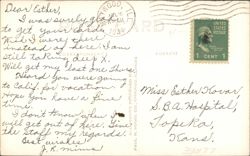 Dear Esther,
I was surely glad
to get your card.
Wish I were there
instead of here. I am
still taking deep X.
Will get my last one Thurs.
Heard you were going
to Calif. for vacation. I
hope you have a fine
time.
I don't know when I
will get out of here. Give
the staff my regards.
Best wishes,
J. R. Mims
1 CENT 1
Miss Esther Kovar
S.B.A. Hospital,
Topeka,
Kans.